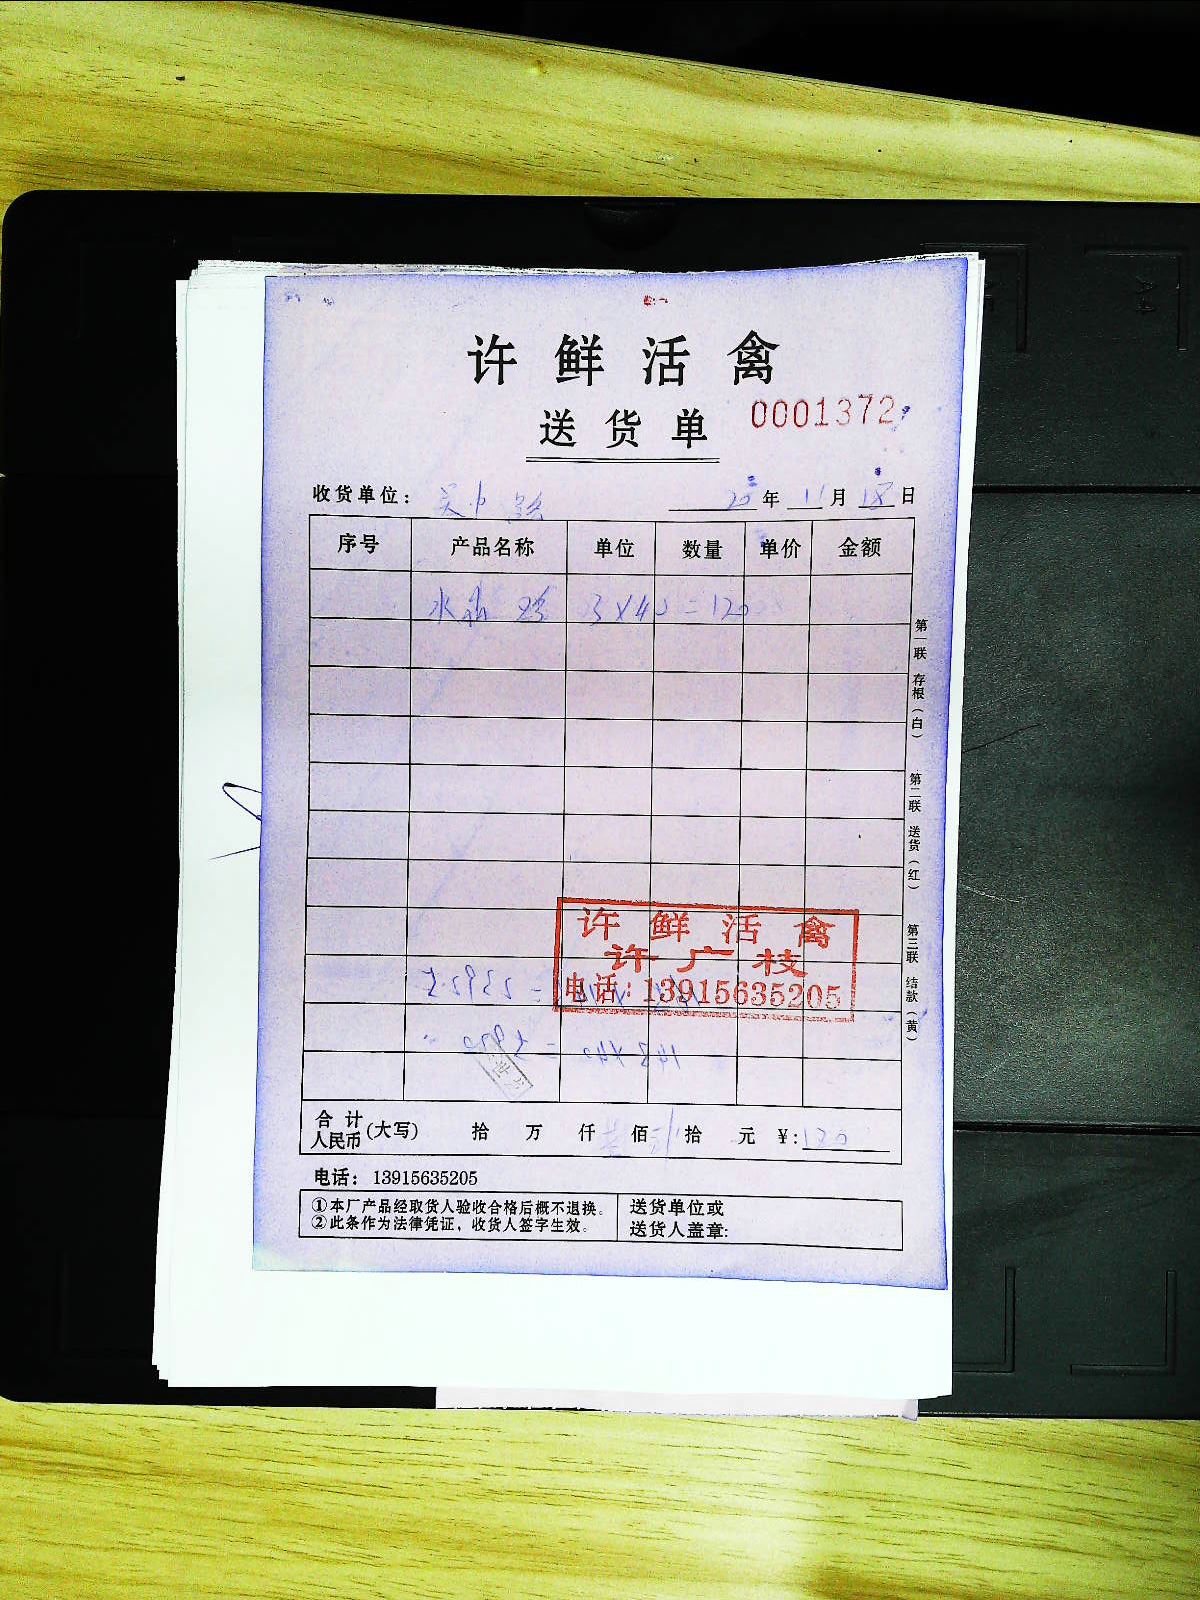 许鲜活禽
送货单 0001372
收货单位： 20年11月18日
序号 产品名称 单位 数量 单价 金额
水 3×40=120
第一联 存根（白） 第二联 送货（红） 第三联 结款（黄）
许鲜活禽
许广枝
电话：13915635205
合计人民币(大写) 拾 万 仟 壹佰 贰拾 元 ¥:120
电话：13915635205
①本厂产品经取货人验收合格后概不退换。
②此条作为法律凭证，收货人签字生效。
送货单位或
送货人盖章: